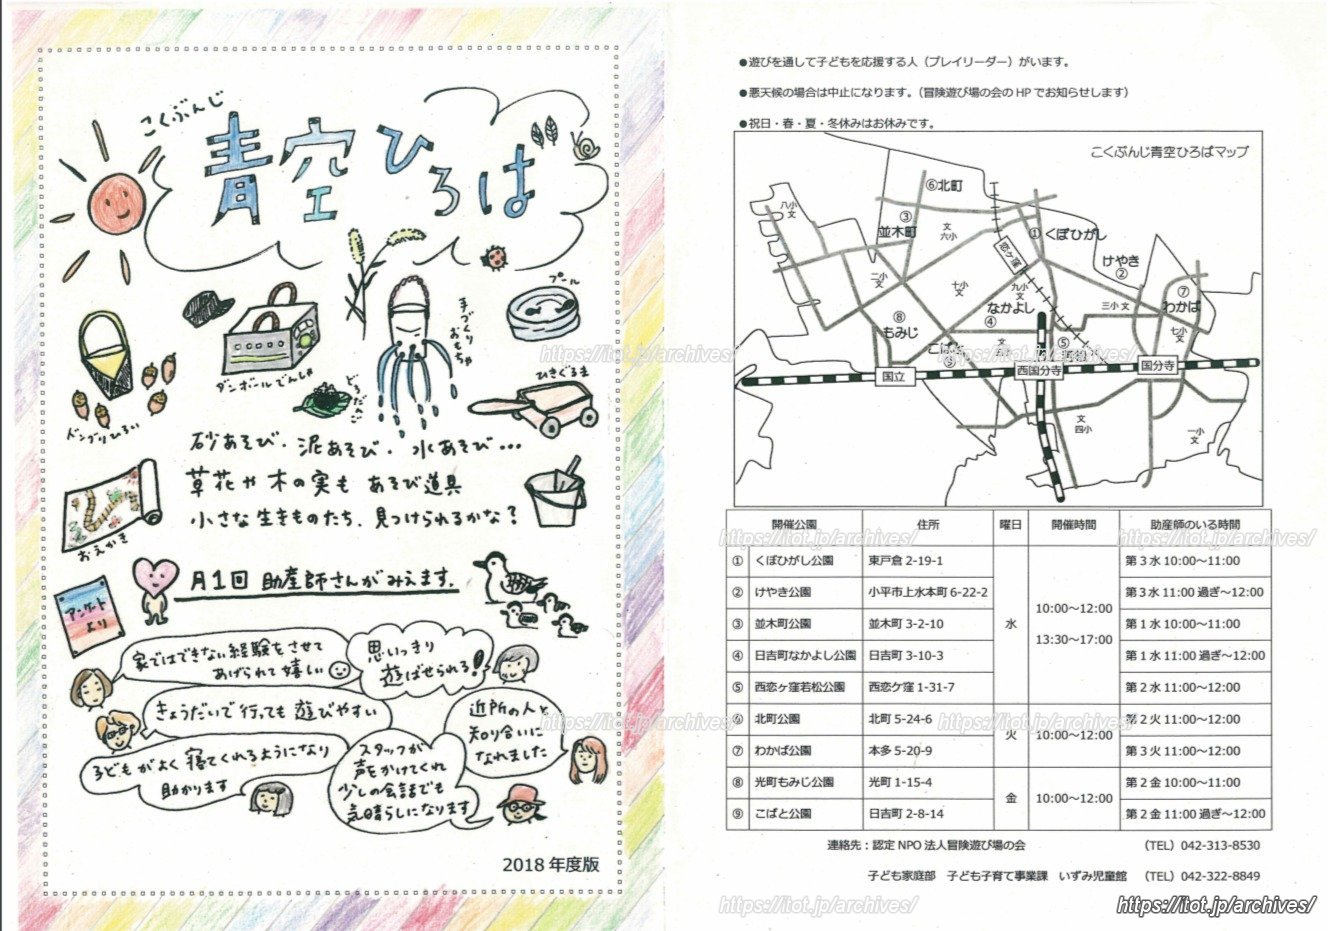 こくぶんじ
青空ひろば
プール
手づくりおもちゃ
ダンボールでんしゃ
どろだんご
ひきぐるま
ドングリひろい
砂あそび・泥あそび・水あそび…
草花や木の実もあそび道具
小さな生きものたち、見つけられるかな？
おえかき
月1回 助産師さんがみえます.
アンケートより
家ではできない経験をさせて
あげられて嬉しい
思いっきり
遊ばせられる!
きょうだいで行っても遊びやすい
近所の人と
知り合いに
なれました
子どもがよく寝てくれるようになり
助かります
スタッフが
声をかけてくれ
少しの会話でも
気晴らしになります
2018 年度版
●遊びを通して子どもを応援する人（プレイリーダー）がいます。
●悪天候の場合は中止になります。（冒険遊び場の会の HP でお知らせします）
●祝日・春・夏・冬休みはお休みです。
こくぶんじ青空ひろばマップ
⑥北町
八小
文
③
並木町
文
六小
①くぼひがし
恋ケ窪
けやき
②
二小
文
十小
文
九小
文
なかよし
④
三小 文
⑦
わかば
七小
文
⑧
もみじ
こばと
⑨
文
⑤
国立
西国分寺
国分寺
文
四小
一小
文
開催公園 住所 曜日 開催時間 助産師のいる時間
① くぼひがし公園 東戸倉 2-19-1 第 3 水 10:00～11:00
② けやき公園 小平市上水本町 6-22-2 第 3 水 11:00 過ぎ～12:00
③ 並木町公園 並木町 3-2-10 水 10:00～12:00 13:30～17:00 第 1 水 10:00～11:00
④ 日吉町なかよし公園 日吉町 3-10-3 第 1 水 11:00 過ぎ～12:00
⑤ 西恋ヶ窪若松公園 西恋ケ窪 1-31-7 第 2 水 11:00～12:00
⑥ 北町公園 北町 5-24-6 火 10:00～12:00 第 2 火 11:00～12:00
⑦ わかば公園 本多 5-20-9 第 3 火 11:00～12:00
⑧ 光町もみじ公園 光町 1-15-4 金 10:00～12:00 第 2 金 10:00～11:00
⑨ こばと公園 日吉町 2-8-14 第 2 金 11:00 過ぎ～12:00
連絡先：認定 NPO 法人冒険遊び場の会 （TEL）042-313-8530
子ども家庭部 子ども子育て事業課 いずみ児童館 （TEL）042-322-8849
https://itot.jp/archives/
https://itot.jp/archives/
https://itot.jp/archives/
https://itot.jp/archives/
https://itot.jp/archives/
https://itot.jp/archives/
https://itot.jp/archives/
https://itot.jp/archives/